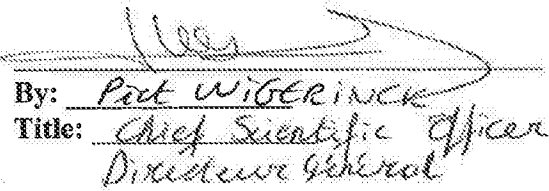 By: Piet WiGERiNCK
Title: Chief Scientific Officer
Directeur Général